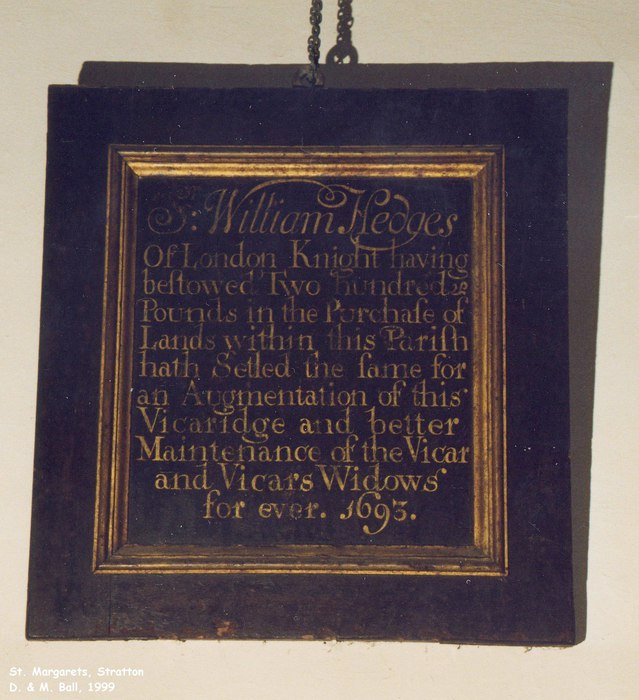 Sr: William Hedges
Of London Knight having
beſtowed Two hundred
Pounds in the Purchaſe of
Lands within this Pariſh
hath Setled the ſame for
an Augmentation of this
Vicaridge and better
Maintenance of the Vicar
and Vicars Widows
for ever. 1693.
St. Margarets, Stratton
D. & M. Ball, 1999